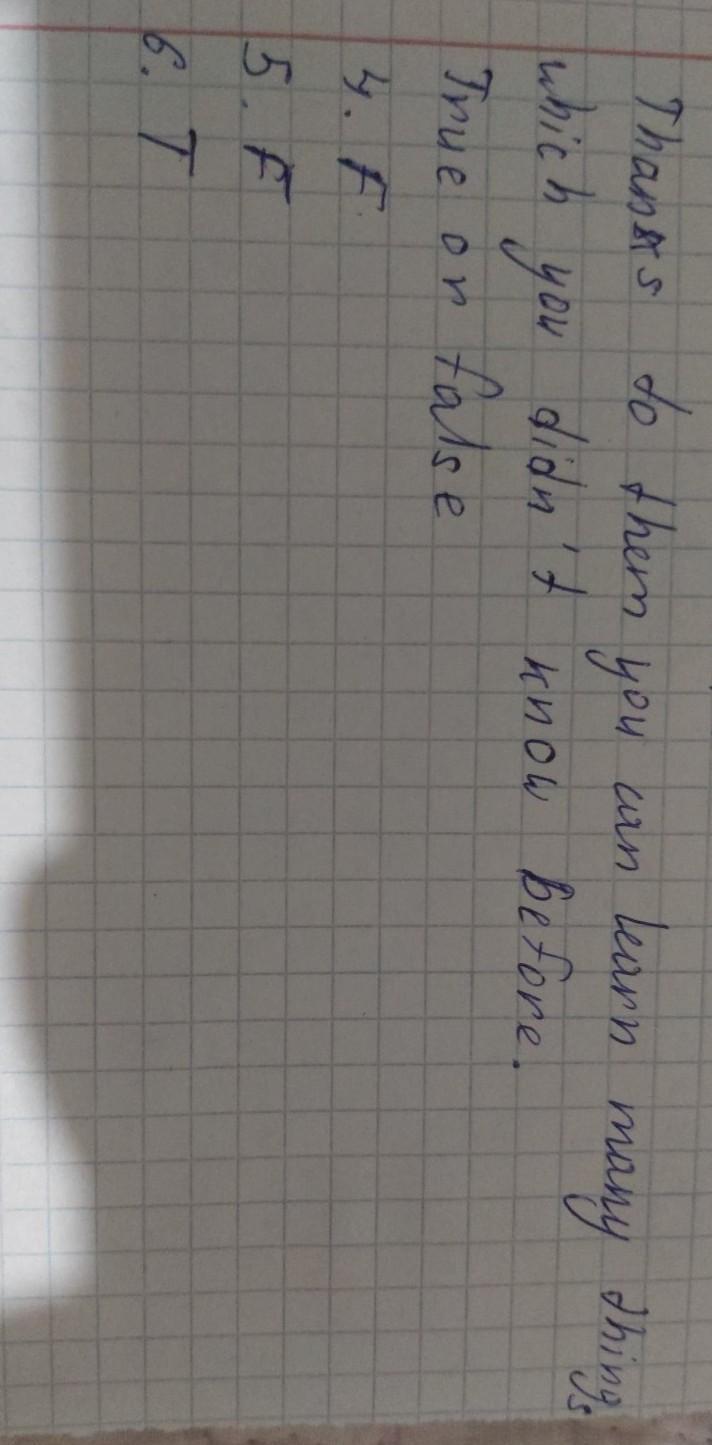 Thanks to them you can learn many things
which you didn't know before.
True or false
4. F.
5. F
6. T